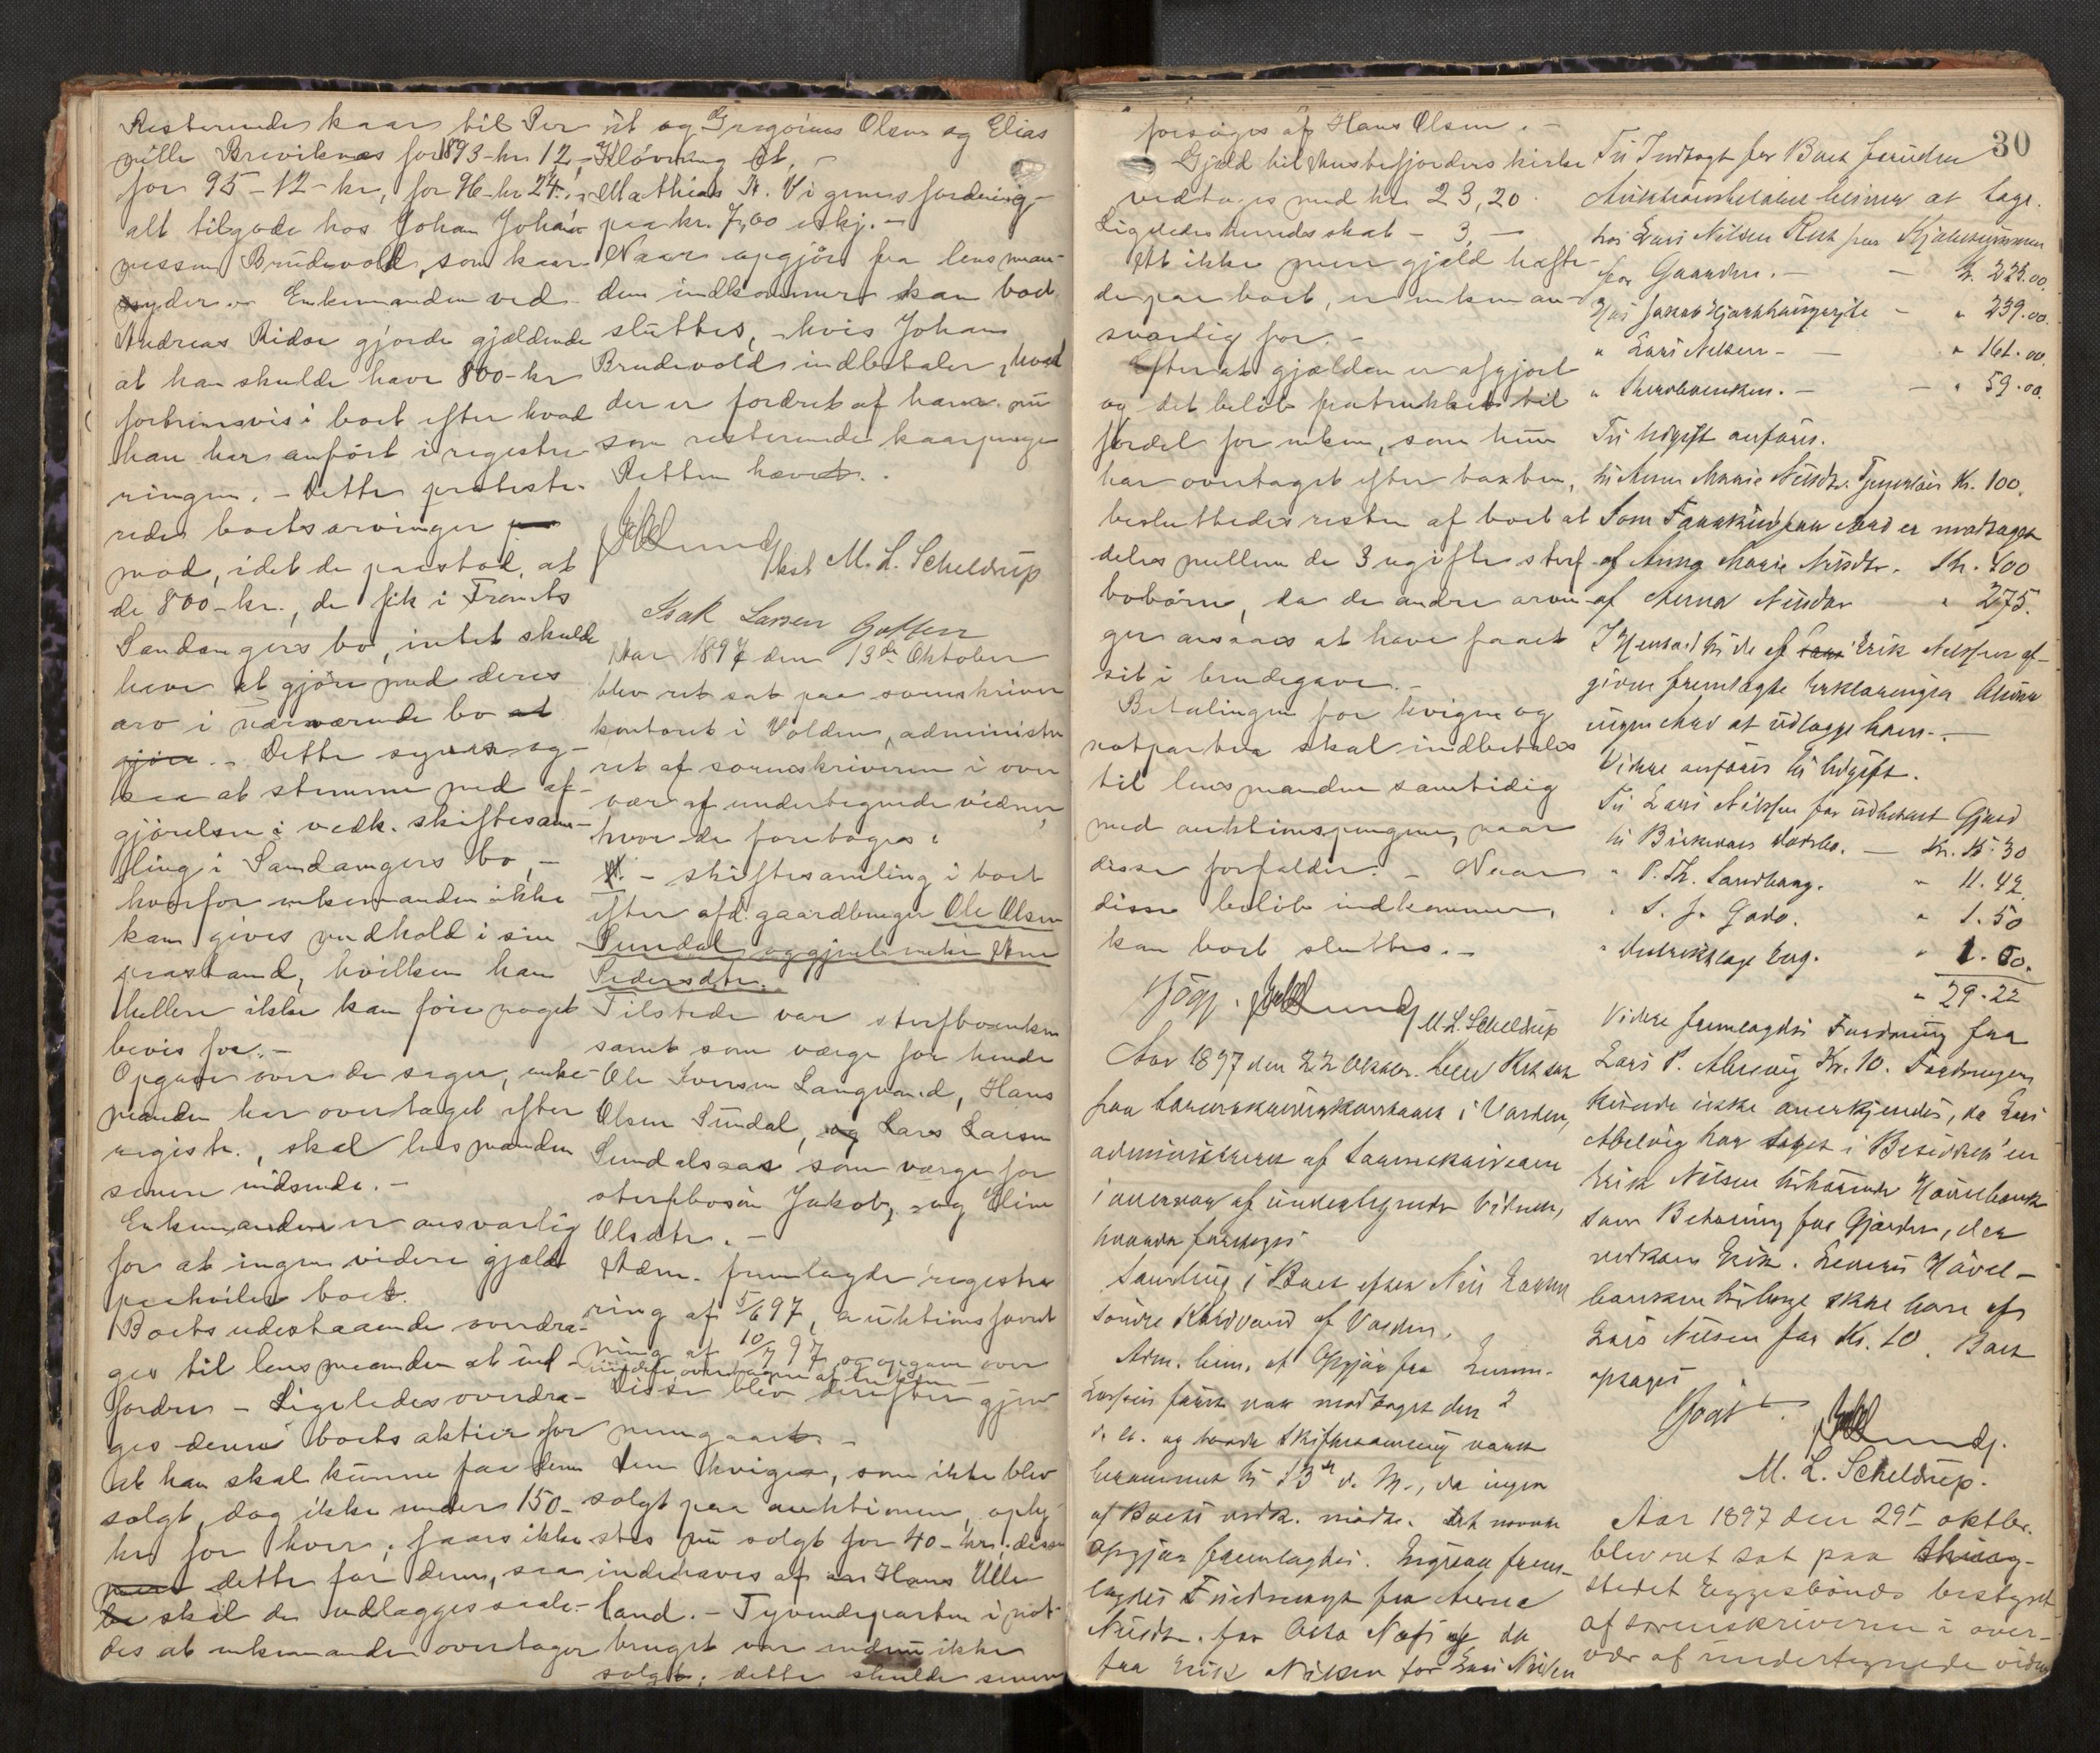 Resterende kaar til Per
nille Breviknes for 1893 - kr 12,-
for 95 - 12 - kr, for 96 - kr 24. i
alt tilgode hos Johan Johan
nessen Brudevold, som kaar
yder. Enkemanden ved
Andreas Ridar gjorde gjældende
at han skulde have 800 - kr
fortrinsvis i boet efter hvad
han har anført i registre-
ringen. - Dette proteste-
redes boets arvinger
mod, idet de paastod, at
de 800 - kr., de fik i Frants
Sandangers bo, intet skulde
have at gjöre med deres
arv i nærværende bo at
gjöre. - Dette synes og-
saa at stemme med af-
gjörelsen i vedk. skiftesam-
ling i Sandangers bo, -
hvorfor enkemanden ikke
kan gives medhold i sin
paastand, hvilken han
hellere ikke kan före noget
bevis for. -
Opgave over de sager, enke-
manden har overtaget efter
registr., skal lensmanden
senere indsende. -
Enkemanden er ansvarlig
for at ingen videre gjæld
paahviler boet.
Boets udestaaende overdra-
ges til lensmanden at ind-
fordre - Ligeledes overdra-
ges denne boets aktier for
at han skal kunne faa dem
solgt, dog ikke under 150 -
kr for hver; faaes ikke
dette for dem, saa
skal de udlægges saale-
des at enkemanden overtager
et og Gregorius Olsen og Elias
Klövning et. -
Mathias A. Vigenes fordring
paa kr. 7,00 vedkj. -
Naar opgjör fra lensman-
den indkommer kan boet
sluttes, - hvis Johan
Brudevold indbetaler, hvad
der er fordret af ham nu
som resterende kaarpenge
Retten hævet.
Lund
M. L. Scheldrup
Isak Larsen
Aar 1897 den 13de Oktober
blev ret sat paa sorenskriver
kontoret i Volden, administre
ret af sorenskriveren i over
vær af undertegnede vidner,
hvor da foretoges:
- skiftesamling i boet
efter afd. gaardbruger Ole Olsen
Sundal og gjenl. enke Ane
Pedersdtr.
Tilstede var sterfboenken
samt som værge for hende
Ole Iversen Langvand, Hans
Olsen Sundal, og Lars Larsen
Sundalsaas som værge for
sterfbosön Jakob, og Oline
Olsdtr. -
Adm. fremlagde registre
ring af 5/6 97, auktionsforret
ning af 10/7 97, og opgave over
Disse blev derefter gjen
nemgaaet. -
Den kvigen, som ikke blev
solgt paa auktionen, oply-
stes nu solgt for 40 - kr., disse
indehaves af Hans Ulle
land. - Tyvendeparten i not-
bruget var endnu ikke
solgt; dette skulde senere
forsöges af Hans Olsen. -
Gjæld til Austefjordens kirke
vedtoges med kr. 23,20.
Ligeledes herredsskat - 3, -
At ikke mere gjæld hefte-
de paa boet, er enken an-
svarlig for. -
Efter at gjælden er afgjort
og det belöb fratrukket til
fordel for enken, som hun
har overtaget efter taxten,
besluttedes resten af boet at
deles mellem de 3 ugifte sterf-
bobörn, da de andre arvin-
ger ansaaes at have faaet
sit i brudegave. -
Betalingen for kvigen og
notparten skal indbetales
til lensmanden samtidig
med auktionspengene, naar
disse forfalder. - Naar
disse belöb indkommer,
kan boet sluttes. -
Lund
M. L. Scheldrup
Aar 1897 den 22 Oktbr. blev Ret sat
paa Sorenskriverkontoret i Volden,
administreret af Sorenskriveren
i overvær af undertegnede Vidner,
hvorda foretoges
Samling i Boet efter Nils Larsen
Söndre Kaldvand af Volden.
Adm. bem. at Opgjör fra Lensm-
först var modtaget den 2
d. M. og Skiftesamling
berammet til 13de d. M., da ingen
af Boets vedk. mödte. Det nævnte
Opgjör fremlagdes. Ligesaa frem-
lagdes fra Anna
Nilsdtr. for
fra Erik Nilsen for Lars Nilsen
30
Til Indtægt for Boet foruden
Auktionsbelöbet bliver at tage.
hos Lars Nilsen Rest paa Kjöbesummen
for Gaarden. - - Kr. 225.00.
Hos Jakob - " 239.00.
" Lars Nilsen - - " 161.00
" Sterfboenken. - - " 59.00.
Til Udgift anföres.
til Anna Marie Nilsdtr. Tjenerlön Kr. 100.
Som Forskud paa Arv er modtaget
af Anna Marie Nilsdtr. Kr. 400
af Anna Nilsdtr " 275.
I Henhold til de af Erik Nilsen af-
givne fremlagte Erklæringer bliver
ingen Arv at udlægge ham. -
Videre anföres til Udgift.
Til Lars Nilsen for udbetalt Gjæld
til - Kr. 15.30
" P. Th. Sandberg. " 11.42
" S. J. Gado. " 1.50
" " 1.00.
" 29.22
Videre fremlagdes Fordring fra
Lars P. Aleevig Kr. 10. Fordringen
kunde ikke anerkjendes, da Lars
har taget i Besiddelse en
Erik Nilsen tilhörende Hövelbænk
som Betaling for Gjælden, der
vedkom Erik. Hövel-
bænken tilhörge af
Lars Nilsen for Kr. 10. Boet
optages
Lund.
M. L. Scheldrup.
Aar 1897 den 29de oktbr.
blev ret sat paa thing-
stedet Eggesbönes bestyret
af sorenskriveren i over-
vær af undertegnede vidner